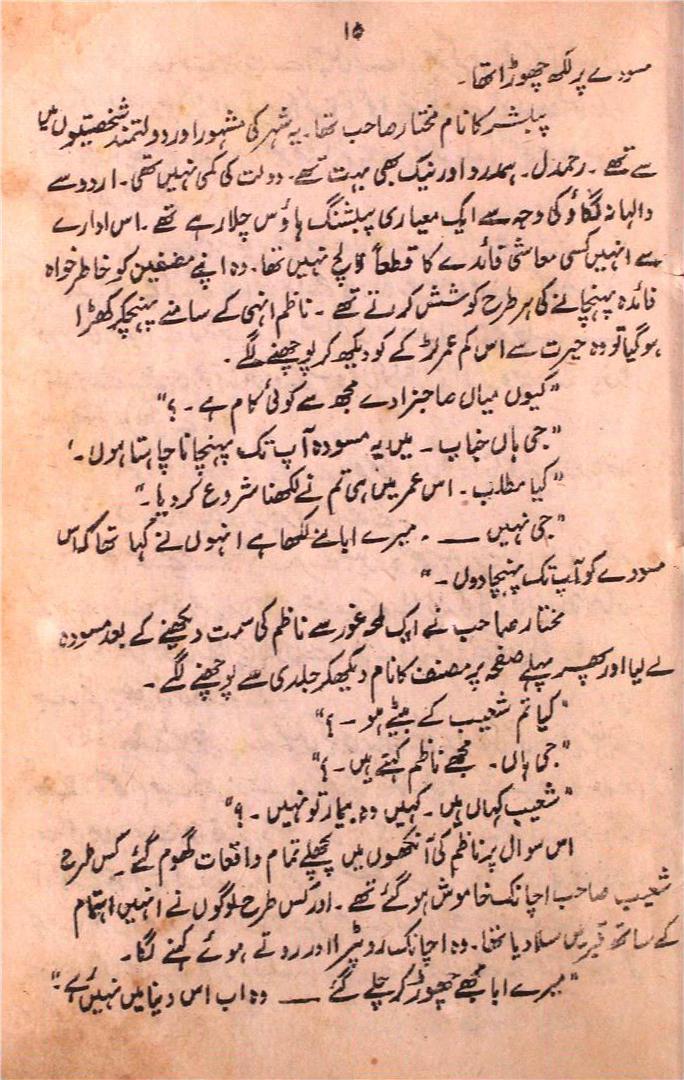 ۱۵
مسودے پر لکھ چھوڑا تھا۔
پبلشر کا نام مختار صاحب تھا۔ یہ شہر کی مشہور اور دولتمند شخصیتوں میں
سے تھے۔ رحمدل۔ ہمدرد اور نیک بھی بہت تھے۔ دولت کی کمی نہیں تھی۔ اردو سے
والہانہ لگاؤ کی وجہ سے ایک معیاری پبلشنگ ہاؤس چلا رہے تھے۔ اس ادارے
سے انہیں کسی معاشی فائدے کا قطعاً لالچ نہیں تھا۔ وہ اپنے مصنفین کو خاطر خواہ
فائدہ پہنچانے کی ہر طرح کوشش کرتے تھے۔ ناظم انہی کے سامنے پہنچکر کھڑا
ہو گیا تو وہ حیرت سے اس کم عمر لڑکے کو دیکھ کر پوچھنے لگے۔
"کیوں میاں صاحبزادے مجھ سے کوئی کام ہے۔؟"
"جی ہاں جناب۔ میں یہ مسودہ آپ تک پہنچانا چاہتا ہوں۔'
"کیا مطلب۔ اس عمر میں ہی تم نے لکھنا شروع کر دیا۔"
"جی نہیں ــــ۔ میرے ابا نے لکھا ہے انہوں نے کہا تھا کہ اس
مسودے کو آپ تک پہنچا دوں۔"
مختار صاحب نے ایک لمحہ غور سے ناظم کی سمت دیکھنے کے بعد مسودہ
لے لیا اور پھر پہلے صفحہ پر مصنف کا نام دیکھکر جلدی سے پوچھنے لگے۔
"کیا تم شعیب کے بیٹے ہو۔؟"
"جی ہاں۔ مجھے ناظم کہتے ہیں۔؟"
"شعیب کہاں ہیں۔ کہیں وہ بیمار تو نہیں۔؟"
اس سوال پر ناظم کی آنکھوں میں پچھلے تمام واقعات گھوم گئے۔ کس طرح
شعیب صاحب اچانک خاموش ہو گئے تھے۔ اور کس طرح لوگوں نے انہیں اہتمام
کے ساتھ قبر میں سلا دیا تھا۔ وہ اچانک رو پڑا اور روتے ہوئے کہنے لگا۔
"میرے ابا مجھے چھوڑ کر چلے گئے ــــ وہ اب اس دنیا میں نہیں رہے۔"